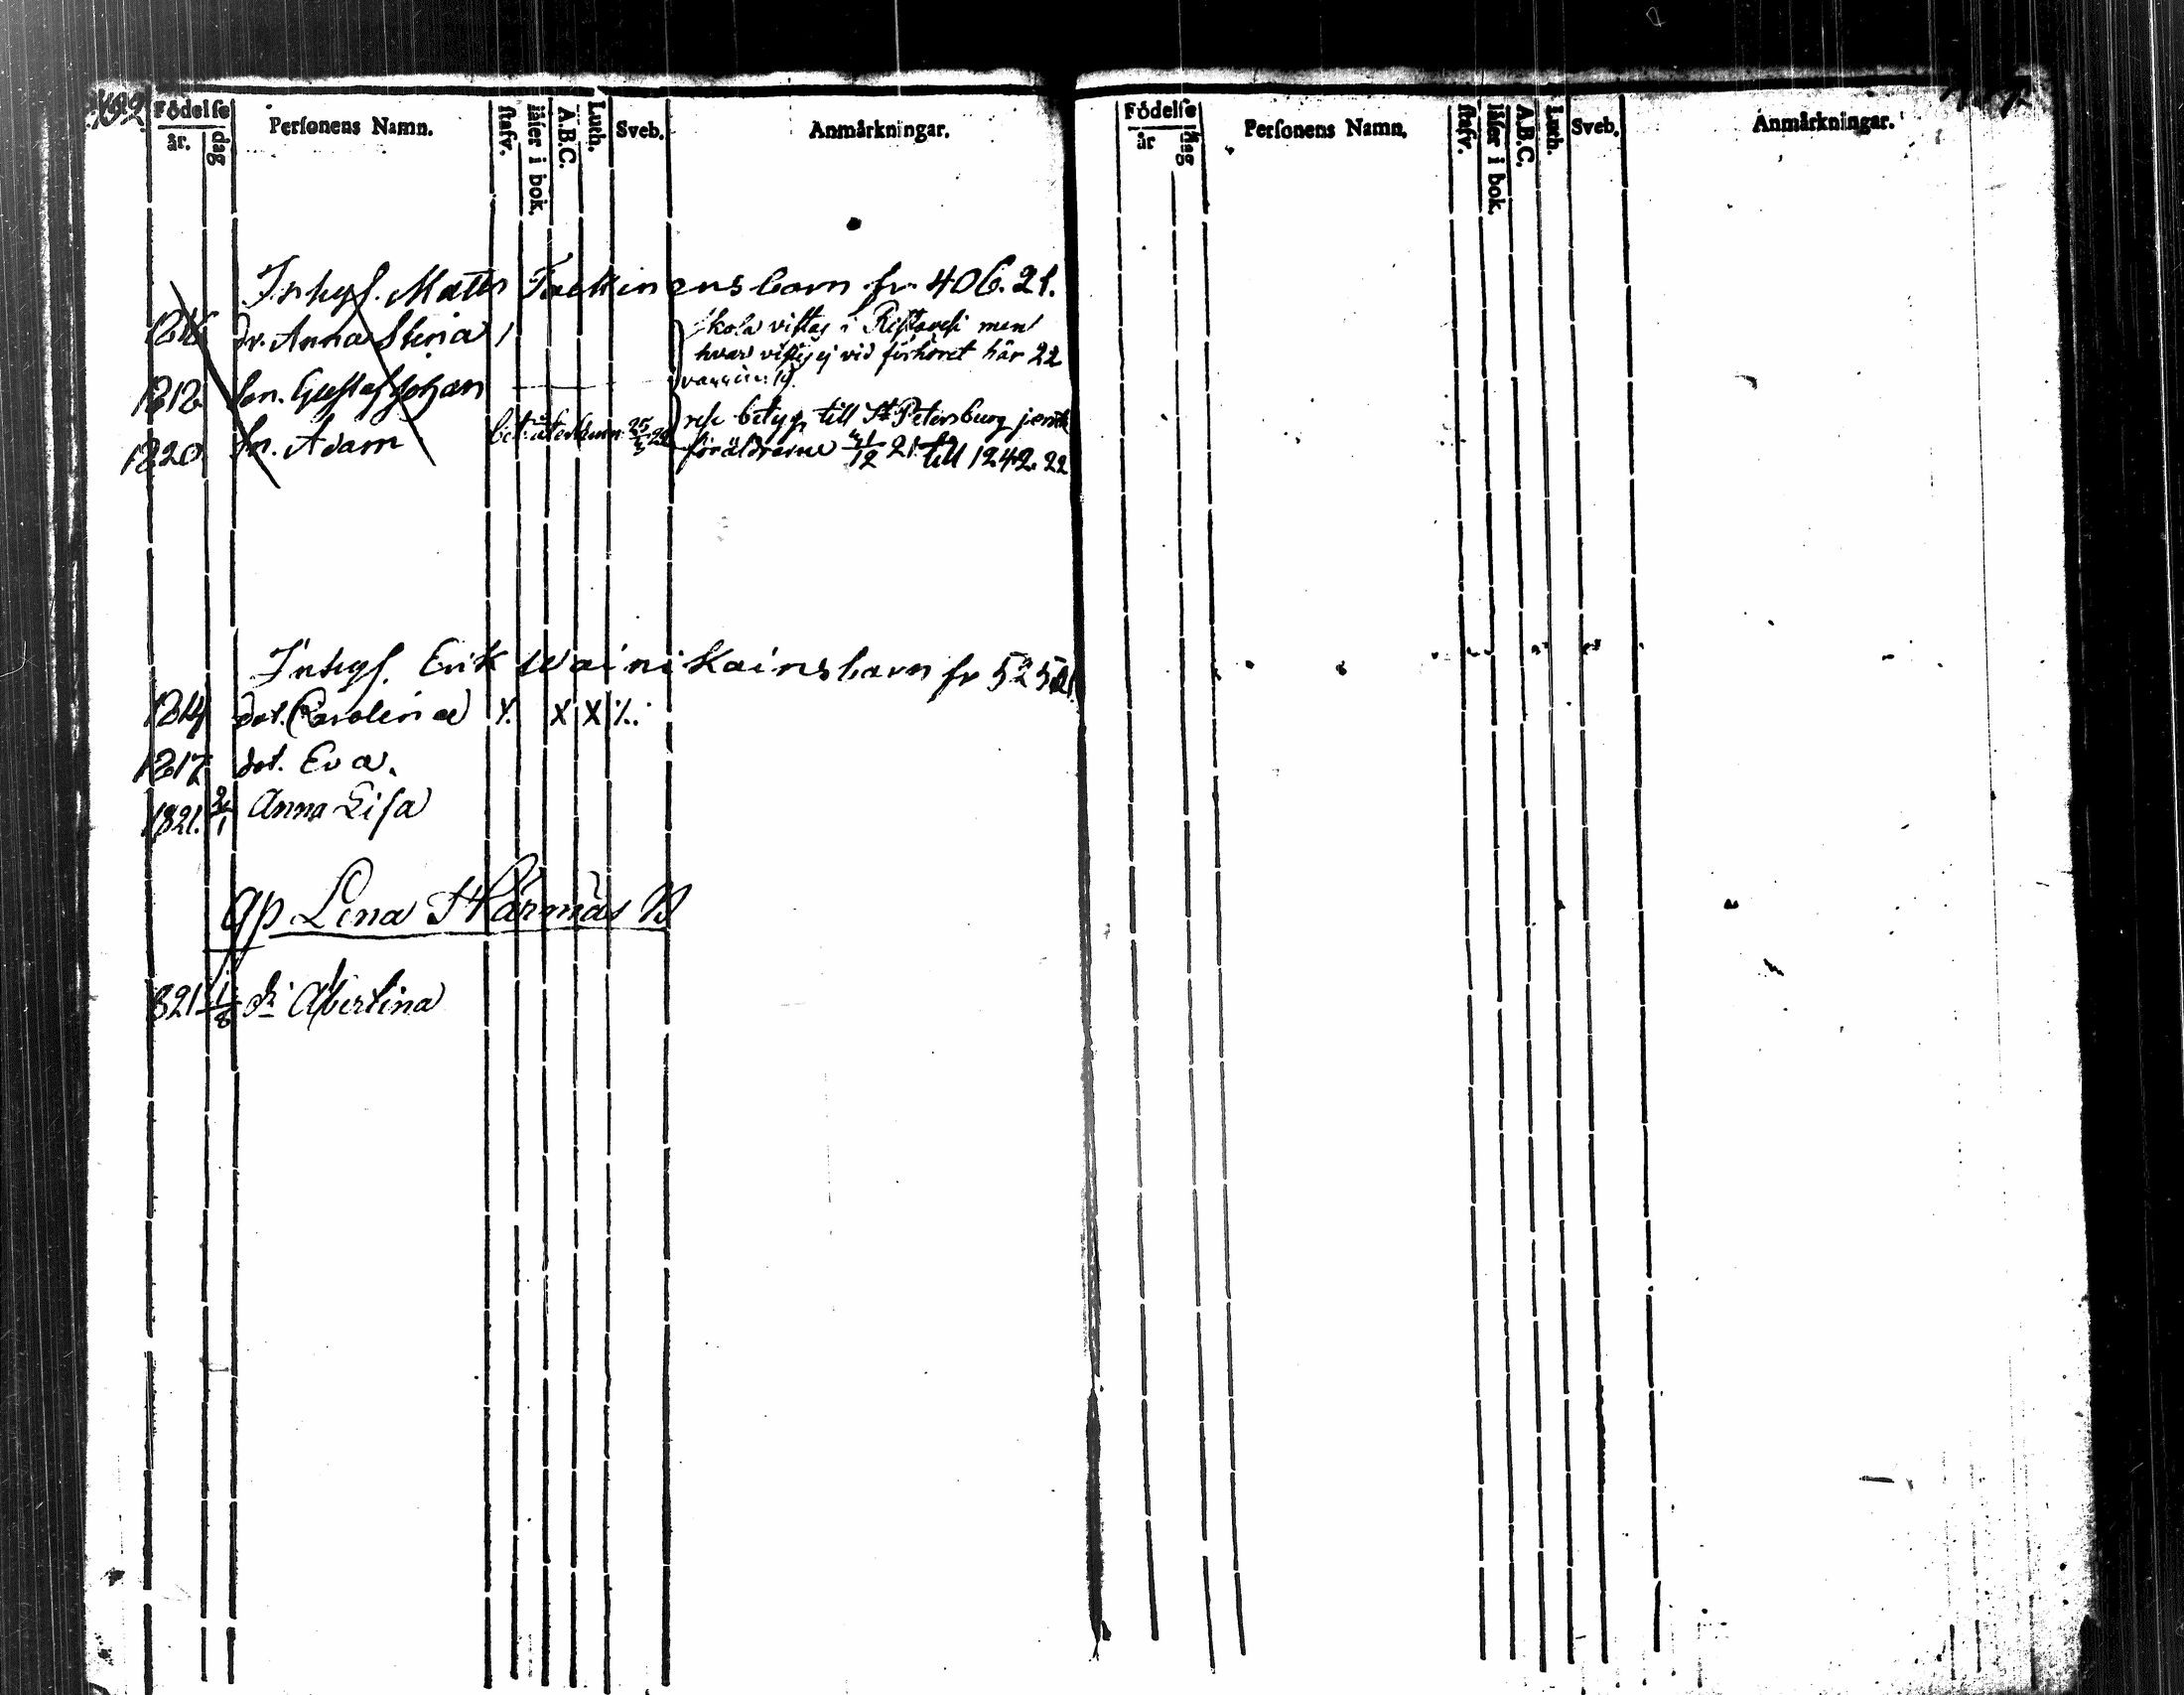 Födelse
år. dag Personens Namn. stafv. läser i bok. A.B.C. Luth. Sveb. Anmärkningar.
Inhys. Matts barn fr. 406. 21.
dr. Anna Stina
skola vistas i Ristavesi men
hvar vistas ej vid förhöret här 22
1812 son. Gustaf Johan
1820 sn. Adam bet: återkom 25/3 22
rese betyg till St Petersburg jemte
föräldrarne 21 till 1242. 22
Inhys. Erik Wainikains barn fr 525
1814 dot. Carolina X X X
1817 dot. Eva.
1821. Anna Lisa
qp Lena Härmäs B
821 1/8 dr Albertina
Födelse
år dag Personens Namn. stafv. läser i bok. A.B.C. Luth. Sveb. Anmärkningar.